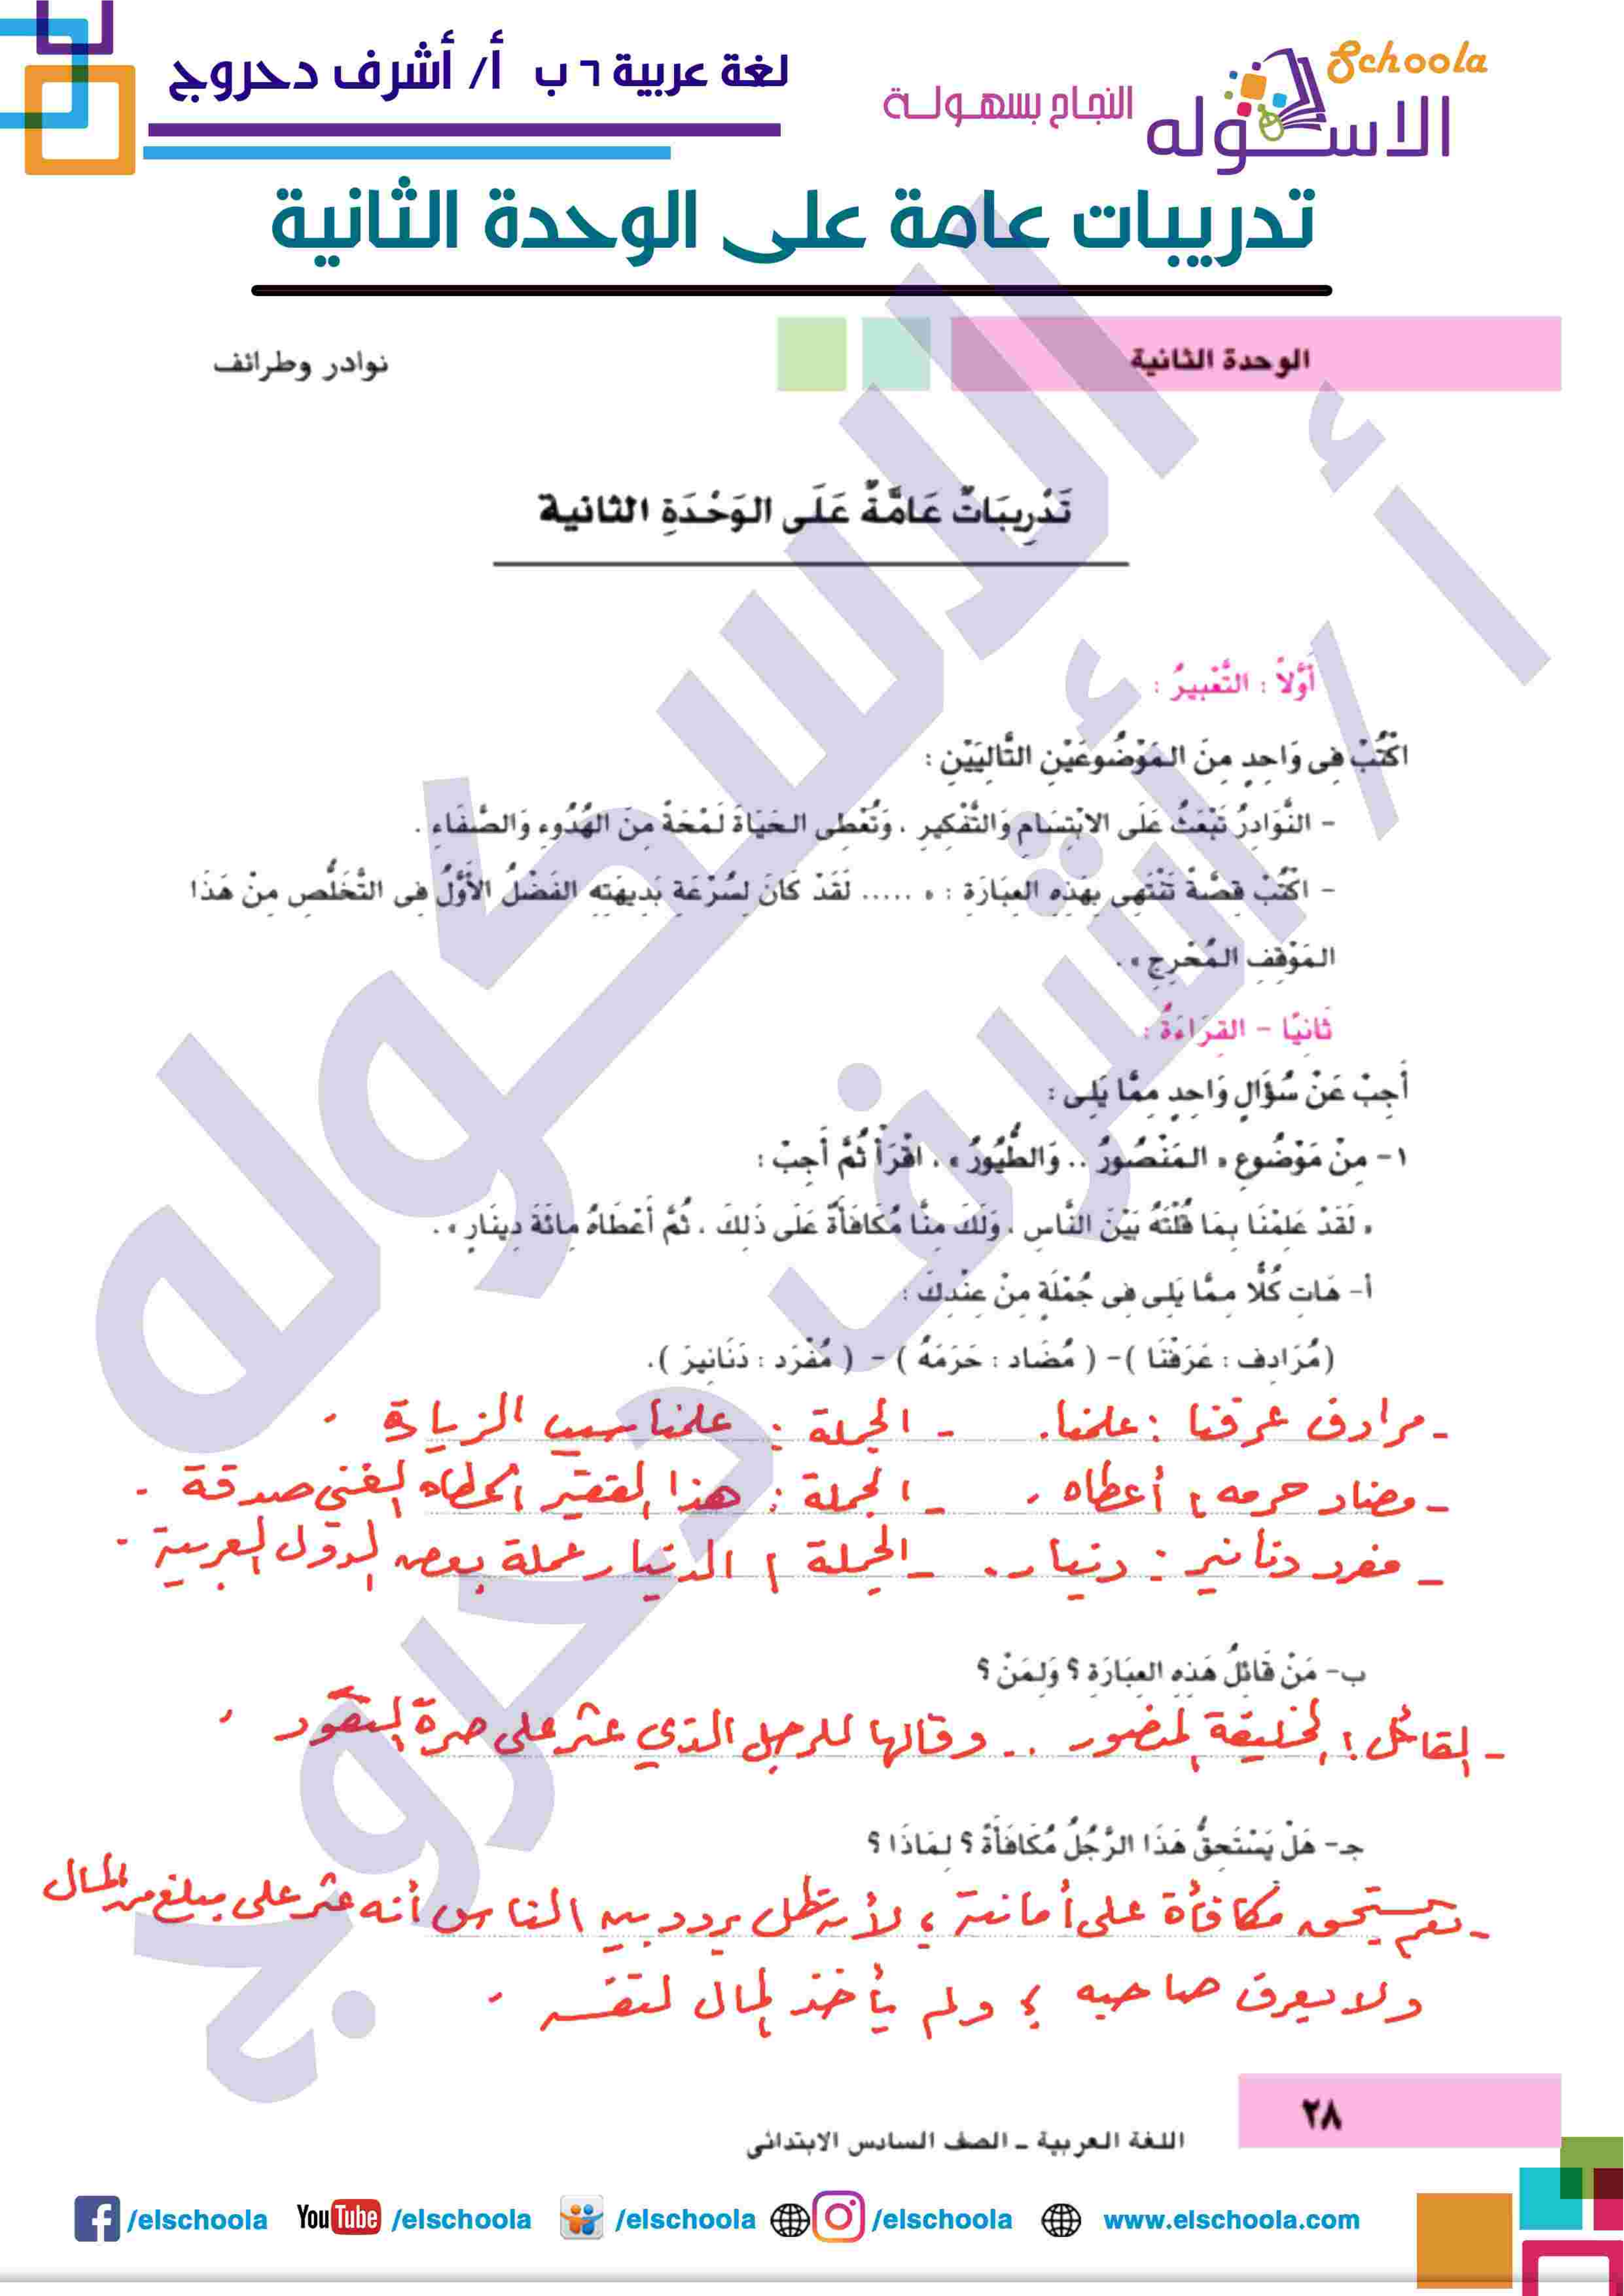 لغة عربية ٦ ب أ/ أشرف دحروج
Schoola
الاسكوله
النجاح بسهولة
تدريبات عامة على الوحدة الثانية
الوحدة الثانية
نوادر وطرائف
تَدْرِيبَاتٌ عَامَّةٌ عَلَى الوَحْدَةِ الثانية
أَوَّلاً : التَّعْبِيرُ :
اكْتُبْ فِى وَاحِدٍ مِنَ المَوْضُوعَيْنِ التَّالِيَيْنِ :
- النَّوَادِرُ تَبْعَثُ عَلَى الابْتِسَامِ وَالتَّفْكِيرِ ، وَتُعْطِى الحَيَاةَ لَمْحَةً مِنَ الهُدُوءِ وَالصَّفَاءِ .
- اكْتُبْ قِصَّةً تَنْتَهِى بِهَذِهِ العِبَارَةِ : « ..... لَقَدْ كَانَ لِسُرْعَةِ بَدِيهَتِهِ الفَضْلُ الأَوَّلُ فِى التَّخَلُّصِ مِنْ هَذَا
المَوْقِفِ المُحْرِجِ » .
ثَانِيًا - القِرَاءَةُ :
أَجِبْ عَنْ سُؤَالٍ وَاحِدٍ مِمَّا يَلِى :
١- مِنْ مَوْضُوعِ « المَنْصُورُ .. وَالطُّيُورُ » ، اقْرَأْ ثُمَّ أَجِبْ :
« لَقَدْ عَلِمْنَا بِمَا قُلْتَهُ بَيْنَ النَّاسِ ، وَلَكَ مِنَّا مُكَافَأَةٌ عَلَى ذَلِكَ ، ثُمَّ أَعْطَاهُ مِائَةَ دِينَارٍ » .
أ- هَاتِ كُلًّا مِمَّا يَلِى فِى جُمْلَةٍ مِنْ عِنْدِكَ :
(مُرَادِف : عَرَفْنَا )- ( مُضَاد : حَرَمَهُ ) - ( مُفْرَد : دَنَانِيرَ ).
- مرادف عرفنا : علمنا. - الجملة : علمنا سبب الزيارة .
- مضاد حرمه : أعطاه . - الجملة : هذا الفقير أعطاه الغني صدقة .
- مفرد دنانير : دينار . - الجملة : الدينار عملة بعض الدول العربية .
ب- مَنْ قَائِلُ هَذِهِ العِبَارَةِ ؟ وَلِمَنْ ؟
- القائل : الخليفة المنصور .. وقالها للرجل الذي عثر على صرة النقود .
جـ- هَلْ يَسْتَحِقُّ هَذَا الرَّجُلُ مُكَافَأَةً ؟ لِمَاذَا ؟
- نعم يستحق مكافأة على أمانته ؛ لأنه ظل يردد بين الناس أنه عثر على مبلغ من المال
ولا يعرف صاحبه ؛ ولم يأخذ المال لنفسه .
٢٨
اللغة العربية ـ الصف السادس الابتدائى
/elschoola YouTube /elschoola /elschoola /elschoola www.elschoola.com
الاسكوله
أ / أشرف دحروج